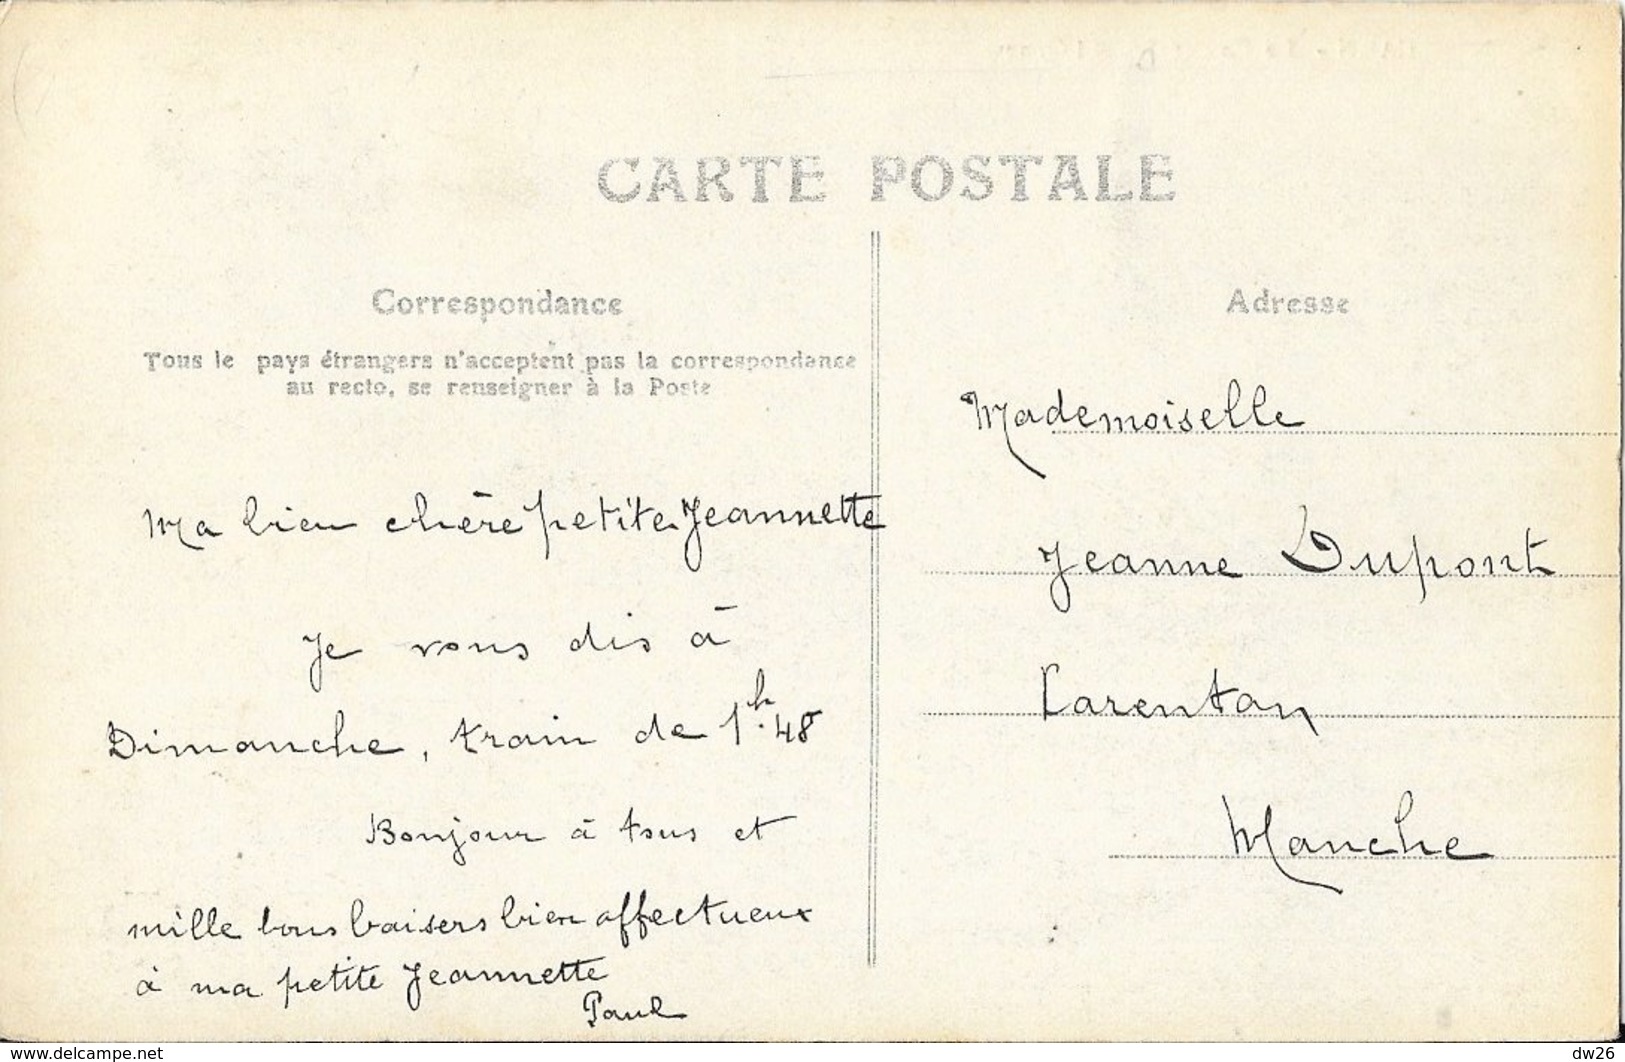 CARTE POSTALE
Correspondance
Tous le pays étrangers n'acceptent pas la correspondance
au recto, se renseigner à la Poste
Ma bien chère petite Jeannette
Je vous dis à
Dimanche, train de 1h.48
Bonjour à tous et
mille bons baisers bien affectueux
à ma petite Jeannette
Paul
Adresse
Mademoiselle
Jeanne Dupont
Carentan
Manche
www.delcampe.net
dw26